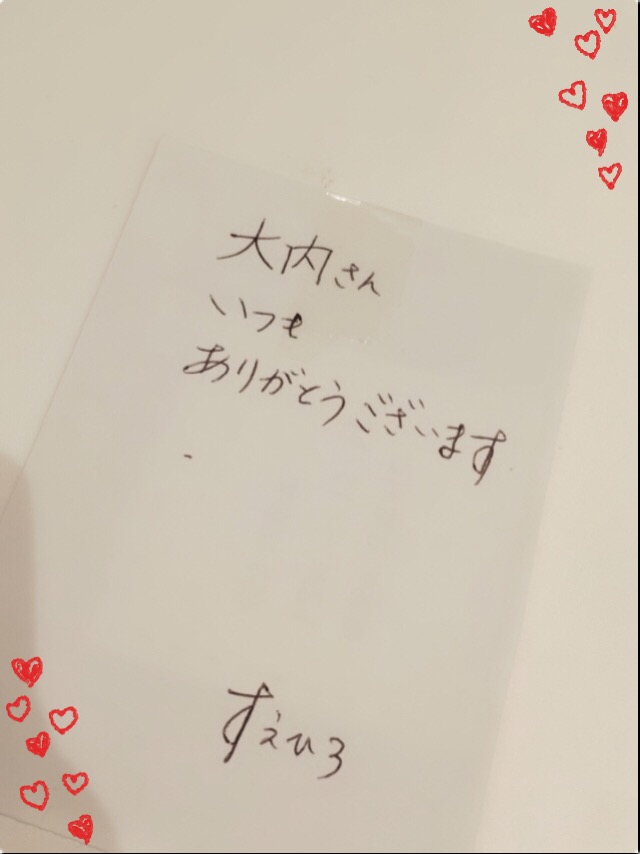 大内さん
いつも
ありがとうございます
すえひろ